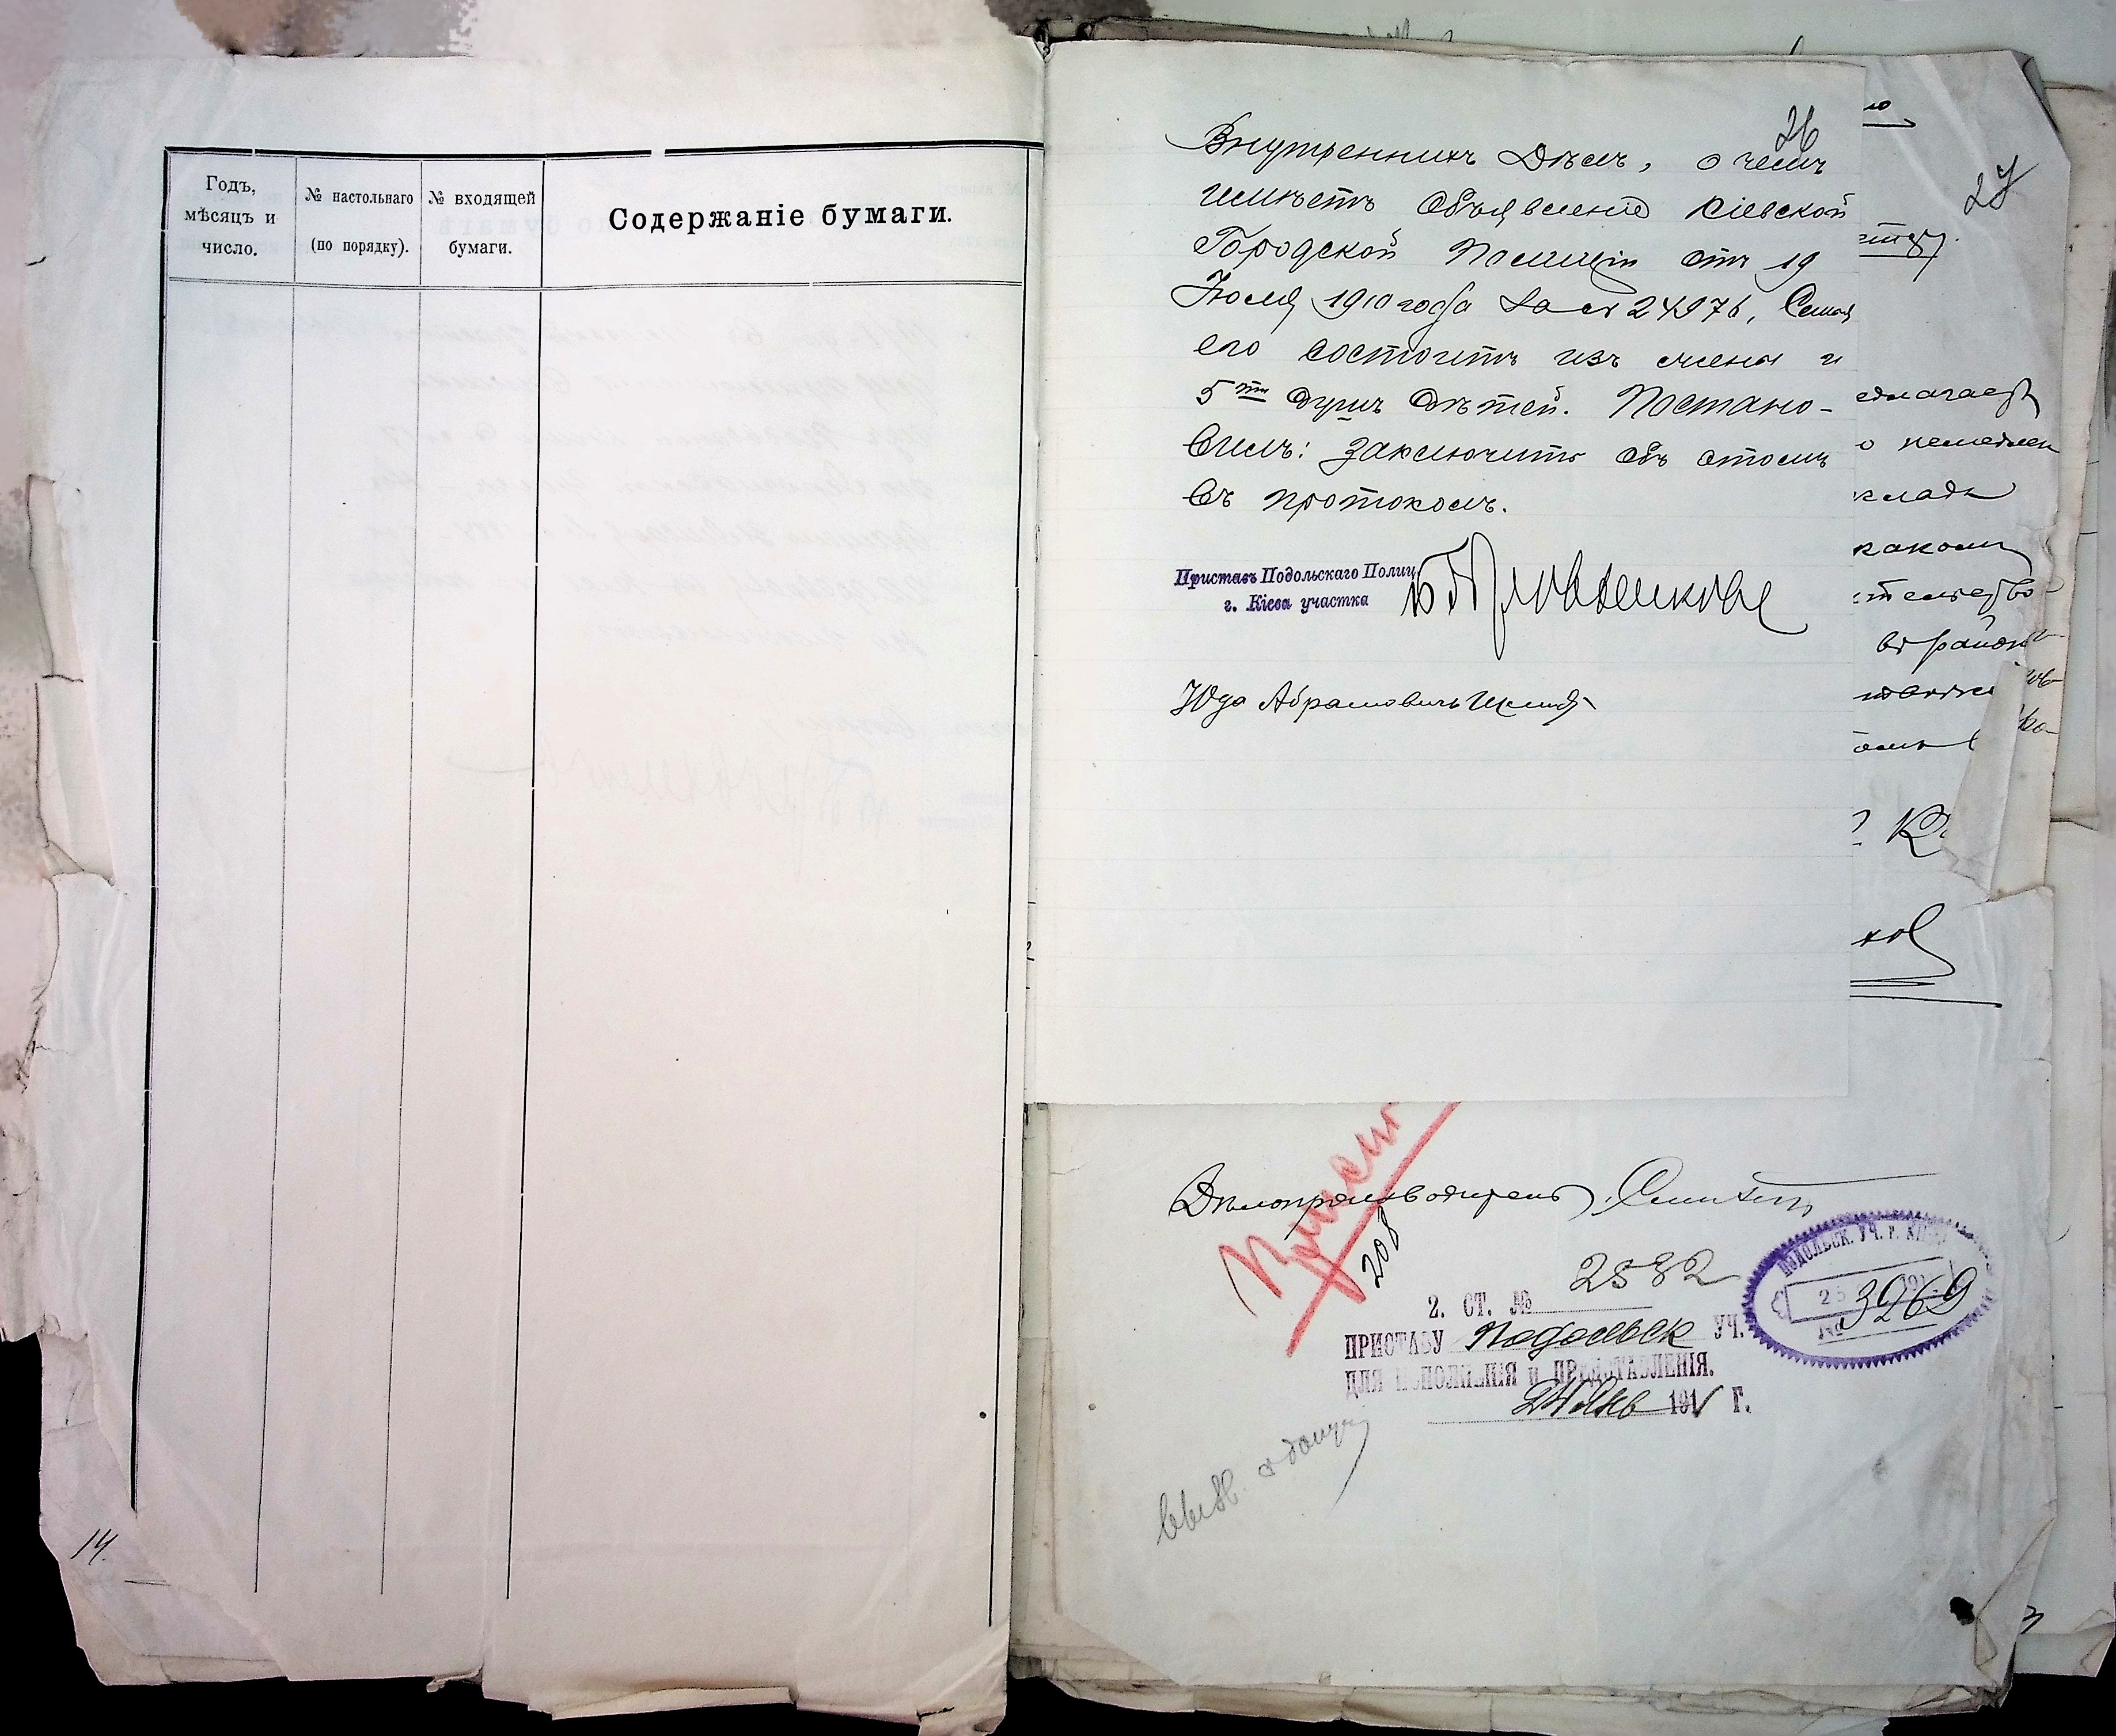 Годъ,
мѣсяцъ и
число.
№ настольнаго
(по порядку).
№ входящей
бумаги.
Содержаніе бумаги.
14.
26
Внутреннихъ Дѣлъ, о чемъ
имѣетъ объявленіе Кіевской
Городской Полиціи отъ 19
Іюля 1910 года за № 24976, Семья
его состоитъ изъ жены и
5ти душъ дѣтей. Постано-
вилъ: заключить объ этомъ
въ протоколъ.
Приставъ Подольскаго Полиц.
г. Кіева участка
Юда Абрамовичъ
27
едлагаетъ
о немедлен
кладъ
какому
въ район
Дѣлопроизводитель
208
2. СТ. № 2582
ПРИСТАВУ Подольск УЧ.
ДЛЯ ИСПОЛНЕНІЯ и ПРЕДСТАВЛЕНІЯ.
24 Янв 1911 Г.
ПОДОЛЬСК. УЧ. Г. КІЕВА
25
№ 3969